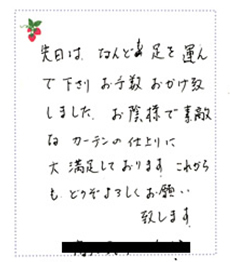 先日は なんども 足を運ん
で下さり お手数 おかけ致
しました。お陰様で素敵
な カーテンの仕上りに
大満足しております これから
も どうぞよろしくお願い
致します